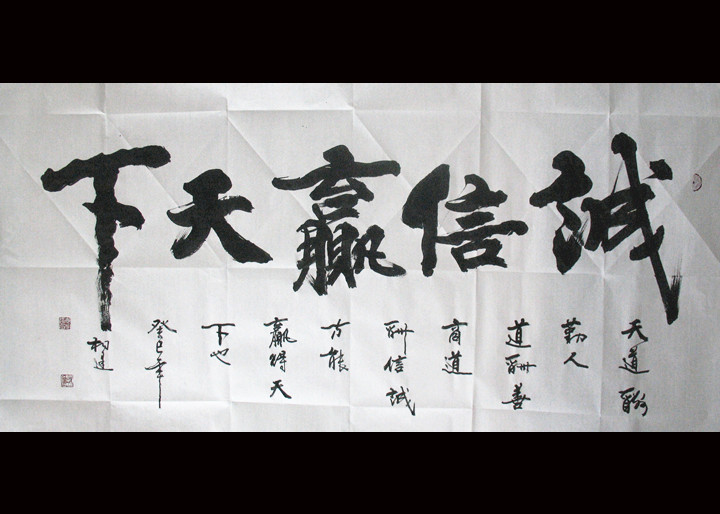 誠信贏天下
天道酬
勤人
道酬善
商道
酬信誠
方能
贏得天
下也
癸巳年